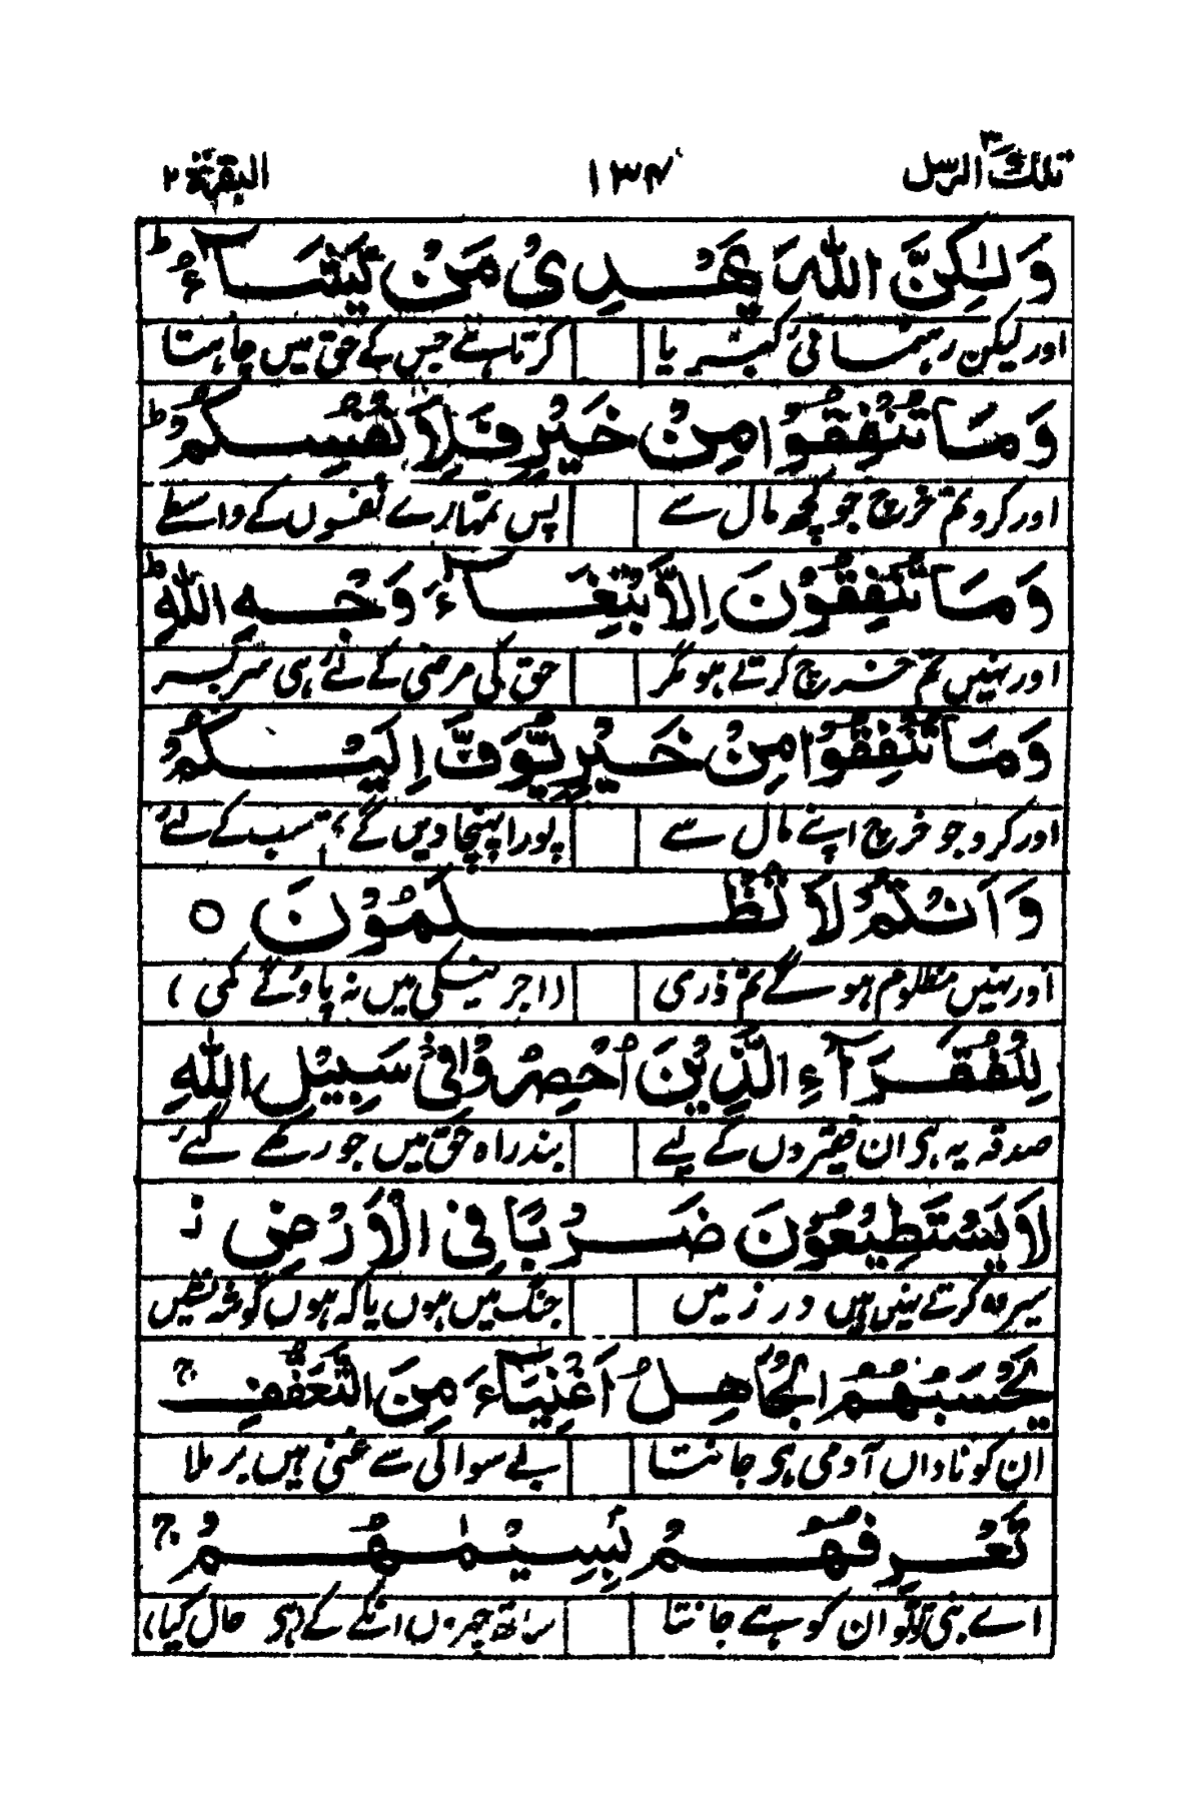 تلك الرسل ٣ ١٣٤ البقرة ٢
وَلٰكِنَّ اللّٰهَ يَهْدِىْ مَنْ يَّشَآءُ ؕ
اور لیکن رہنمائی کبریا کرتا ہے جس کے حق میں چاہتا
وَمَا تُنْفِقُوْا مِنْ خَيْرٍ فَلِاَنْفُسِكُمْ ؕ
اور کرو تم خرچ جو کچھ مال سے پس تمہارے نفسوں کے واسطے
وَمَا تُنْفِقُوْنَ اِلَّا ابْتِغَآءَ وَجْهِ اللّٰهِ ؕ
اور نہیں تم خرچ کرتے ہو مگر حق کی مرضی کے لئے ہی سربسر
وَمَا تُنْفِقُوْا مِنْ خَيْرٍ يُّوَفَّ اِلَيْكُمْ
اور کرو جو خرچ اپنے مال سے پورا پہنچا دیں گے تم سب کے لئے
وَاَنْتُمْ لَا تُظْلَمُوْنَ ○
اور نہیں مظلوم ہو گے تم ذری (اجر نیکی میں نہ پاؤ گے کمی)
لِلْفُقَرَآءِ الَّذِيْنَ اُحْصِرُوْا فِىْ سَبِيْلِ اللّٰهِ
صدقہ یہ ہی ان فقیروں کے لیے بند راہ حق میں جو رکھے گئے
لَا يَسْتَطِيْعُوْنَ ضَرْبًا فِى الْاَرْضِ ز
سیر وہ کرتے نہیں ہیں در زمیں جنگ میں ہوں یا کہ ہوں گوشہ نشیں
يَحْسَبُهُمُ الْجَاهِلُ اَغْنِيَآءَ مِنَ التَّعَفُّفِ ج
ان کو ناداں آدمی ہی جانتا بے سوالی سے غنی ہیں برملا
تَعْرِفُهُمْ بِسِيْمٰهُمْ ج
اے نبی تو تو ان کو ہے جانتا ساتھ چہروں انکے کے (ہی حال کیا)